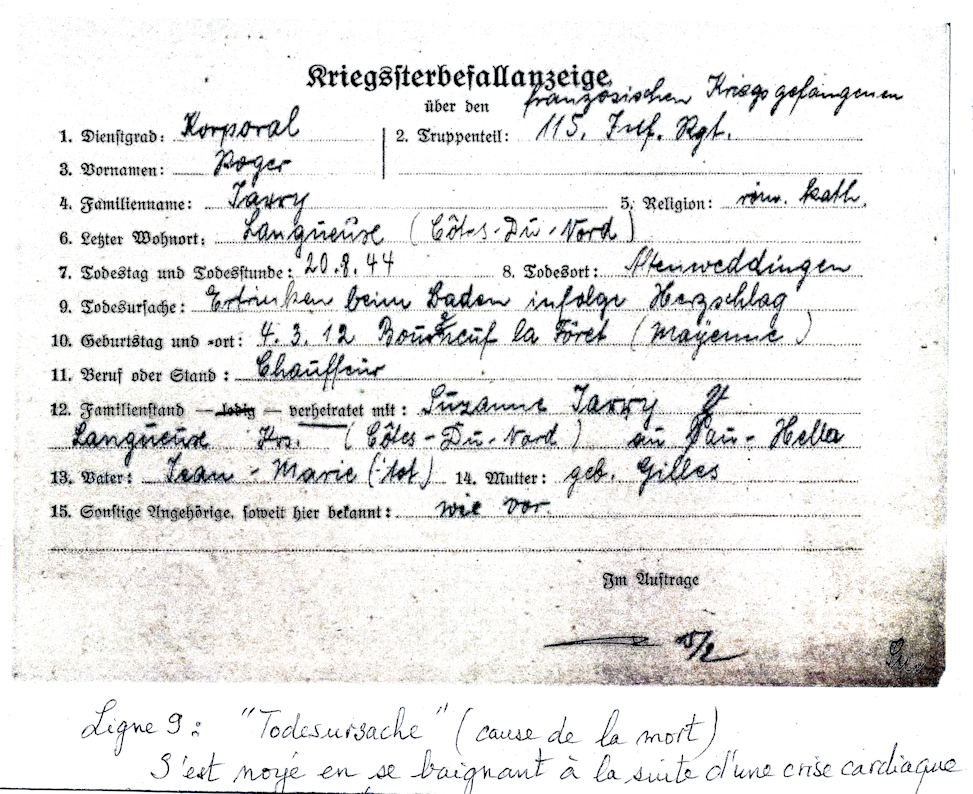 Kriegssterbefallanzeige
über den französischen Kriegsgefangenen
1. Dienstgrad: Korporal 2. Truppenteil: 115. Inf. Rgt.
3. Vornamen: Roger
4. Familienname: Tarry 5. Religion: röm. kath.
6. Letzter Wohnort: Langueüse (Côtes-Du-Nord)
7. Todestag und Todesstunde: 20.8.44 8. Todesort: Altenweddingen
9. Todesursache: Ertrinken beim Baden infolge Herzschlag
10. Geburtstag und -ort: 4.3.12 Bourgneuf la Fôret (Mayenne)
11. Beruf oder Stand: Chauffeur
12. Familienstand — ledig — verheiratet mit: Suzanne Tarry
Langueüse Krs. (Côtes-Du-Nord)
13. Vater: Jean-Marie (tot) 14. Mutter: geb. Gilles
15. Sonstige Angehörige, soweit hier bekannt: wie vor.
Im Auftrage
Ligne 9: "Todesursache" (cause de la mort)
S'est noyé en se baignant à la suite d'une crise cardiaque